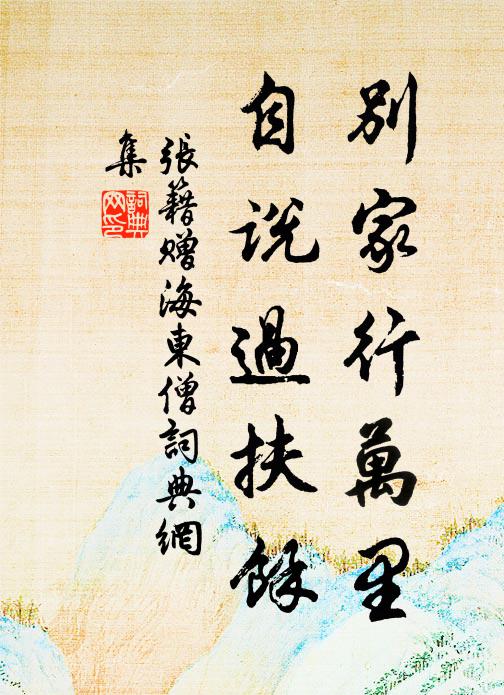 別家行萬里
自説過扶餘
張籍贈海東僧詞典網
集
詞典
网印